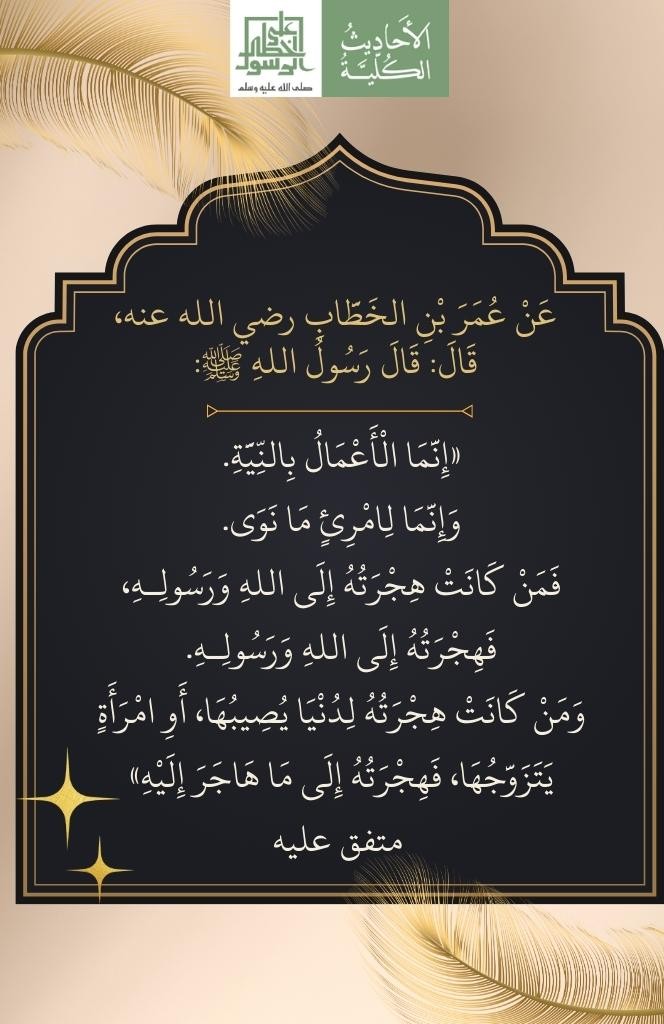 الأَحَادِيثُ
الكُلِّيَّةُ
على
خطى
الرسول
صلى الله عليه وسلم
عَنْ عُمَرَ بْنِ الخَطَّابِ رضي الله عنه،
قَالَ: قَالَ رَسُولُ اللهِ ﷺ:
«إِنَّمَا الْأَعْمَالُ بِالنِّيَّةِ.
وَإِنَّمَا لِامْرِئٍ مَا نَوَى.
فَمَنْ كَانَتْ هِجْرَتُهُ إِلَى اللهِ وَرَسُولِــهِ،
فَهِجْرَتُهُ إِلَى اللهِ وَرَسُولِــهِ.
وَمَنْ كَانَتْ هِجْرَتُهُ لِدُنْيَا يُصِيبُهَا، أَوِ امْرَأَةٍ
يَتَزَوَّجُهَا، فَهِجْرَتُهُ إِلَى مَا هَاجَرَ إِلَيْهِ»
متفق عليه